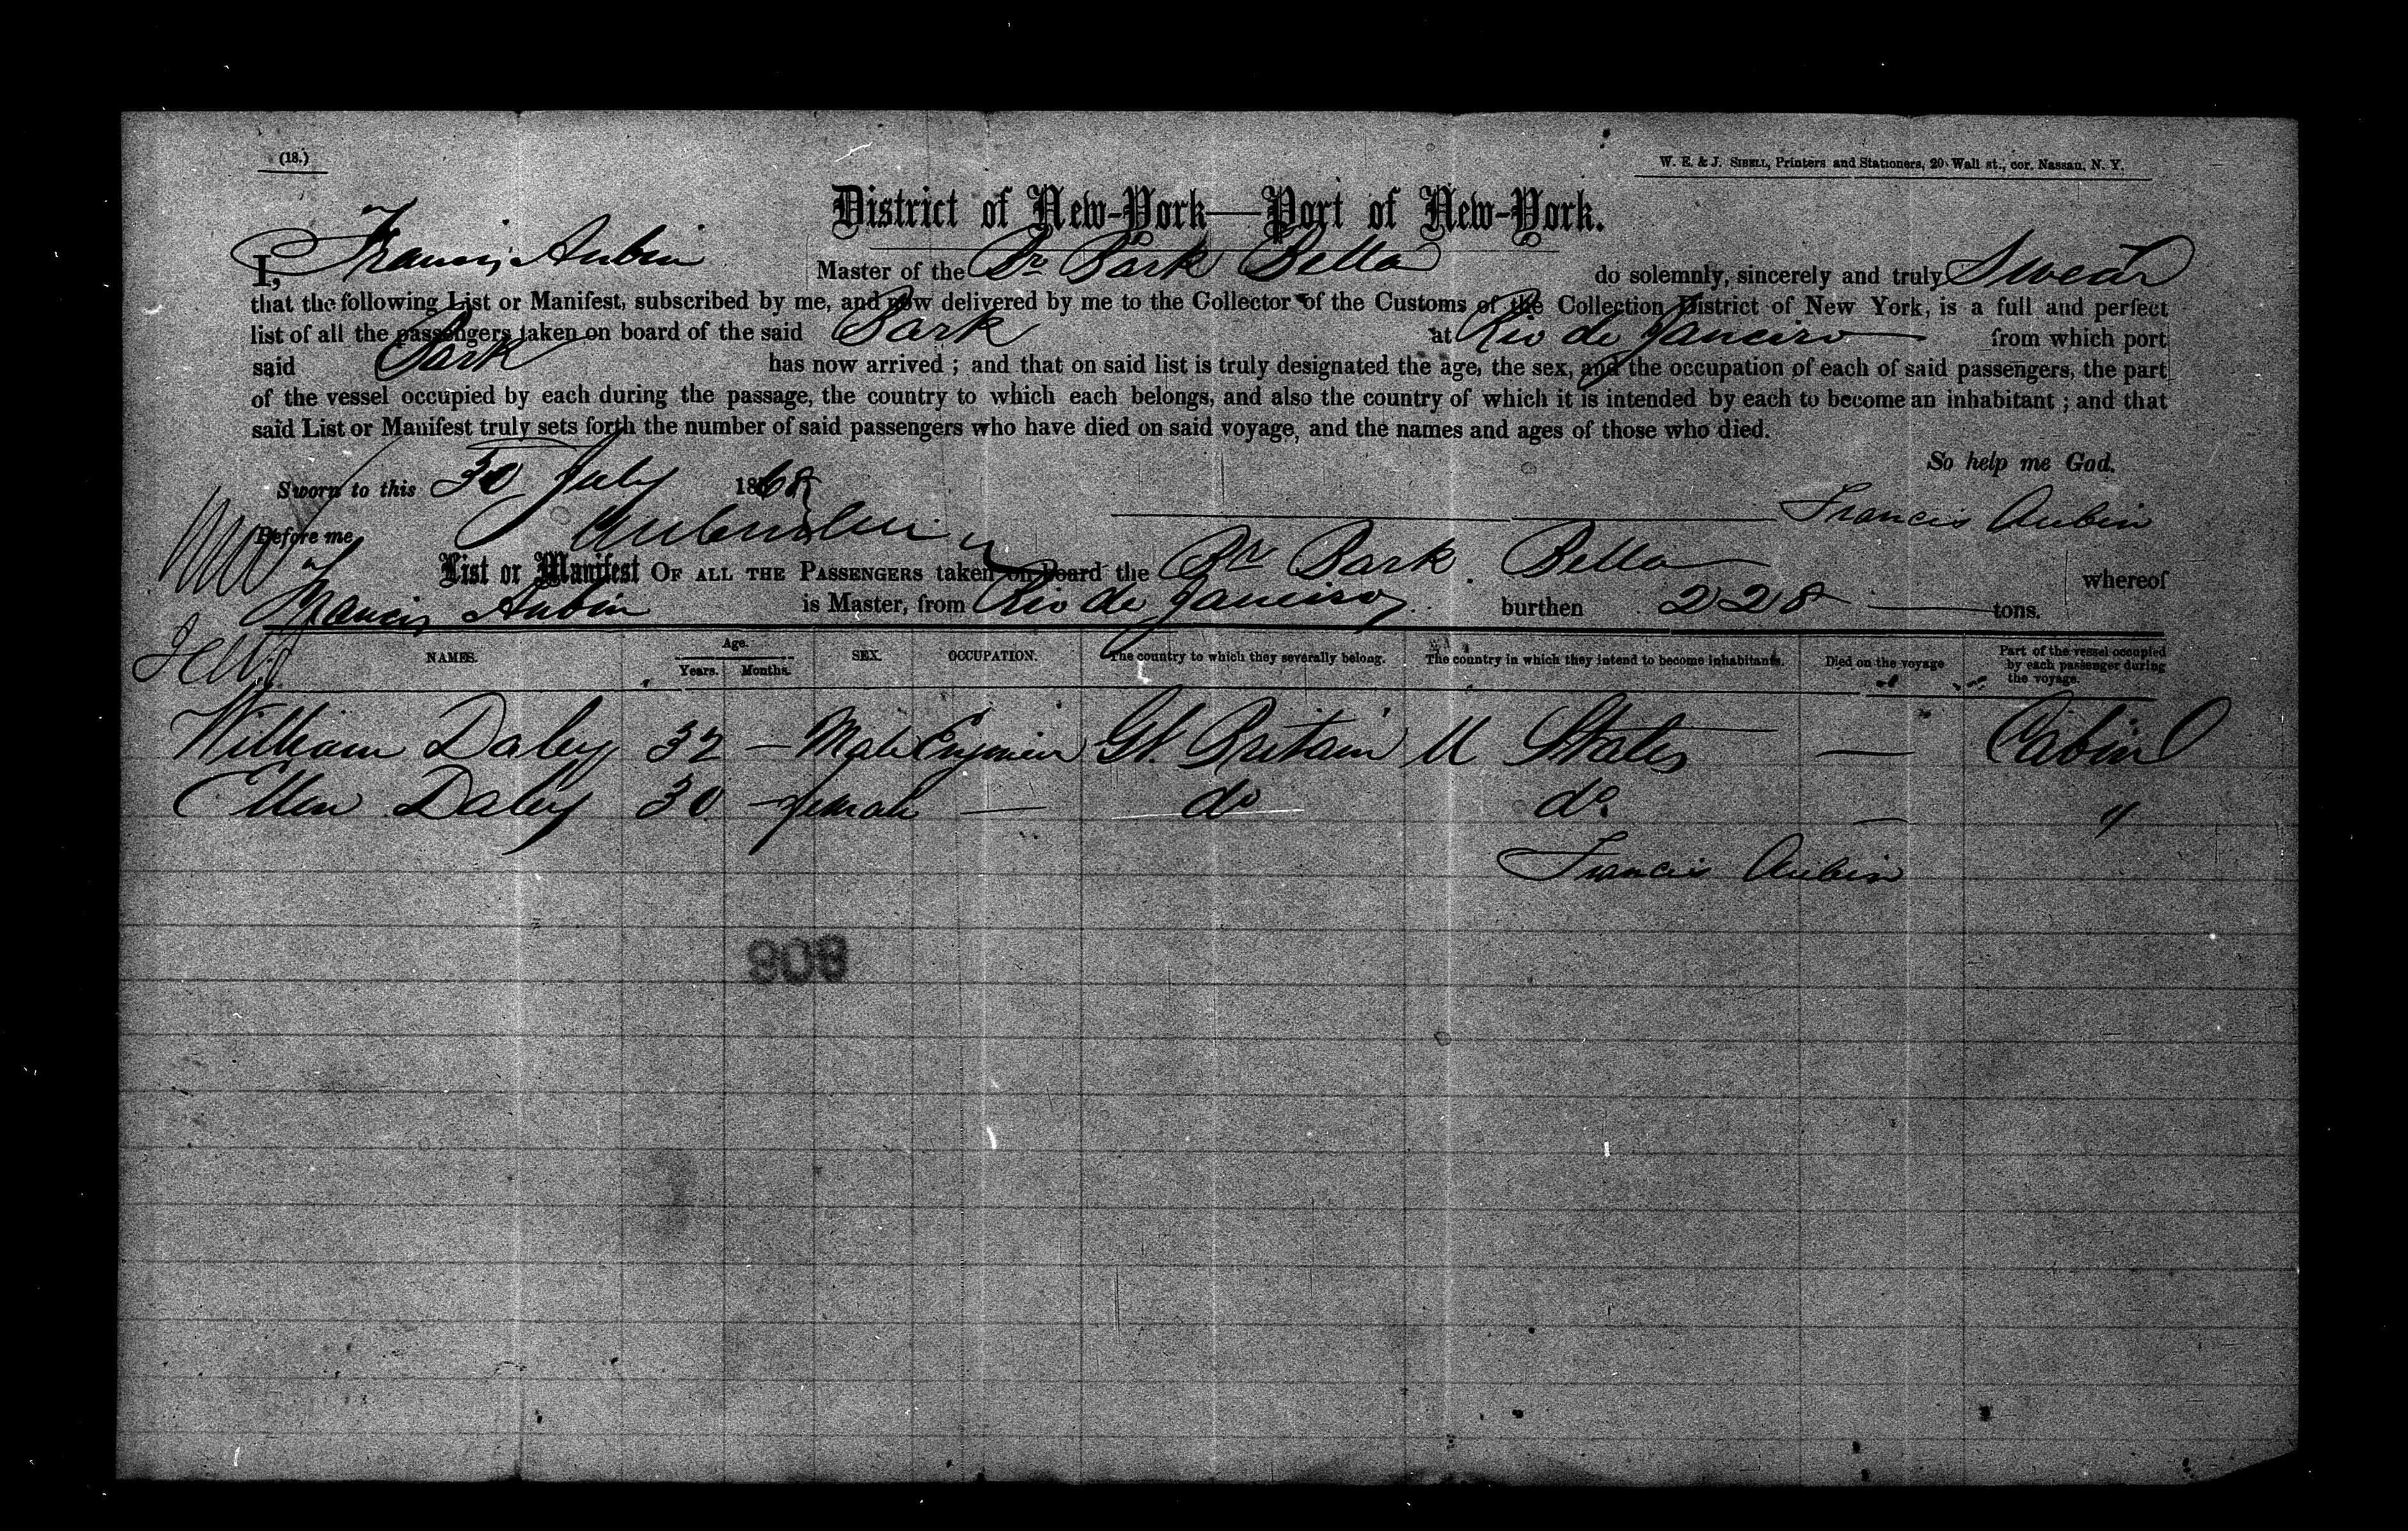 (18.)
W. E. & J. SIBELL, Printers and Stationers, 20 Wall st., cor. Nassau, N. Y.
District of New-York—Port of New-York.
I, Francis Aubin Master of the Br Bark Bella do solemnly, sincerely and truly Swear
that the following List or Manifest, subscribed by me, and now delivered by me to the Collector of the Customs of the Collection District of New York, is a full and perfect
list of all the passengers taken on board of the said Bark at Rio de Janeiro from which port
said Bark has now arrived ; and that on said list is truly designated the age, the sex, and the occupation of each of said passengers, the part
of the vessel occupied by each during the passage, the country to which each belongs, and also the country of which it is intended by each to become an inhabitant ; and that
said List or Manifest truly sets forth the number of said passengers who have died on said voyage, and the names and ages of those who died.
So help me God.
Sworn to this 30 July 1868
Francis Aubin
Before me
List or Manifest OF ALL THE PASSENGERS taken on Board the Br Bark Bella whereof
Francis Aubin is Master, from Rio de Janeiro burthen 228 tons.
NAMES. Age. Years. Months. SEX. OCCUPATION. The country to which they severally belong. The country in which they intend to become inhabitants. Died on the voyage Part of the vessel occupied by each passenger during the voyage.
William Daley 32 — Male Engineer Gt. Britain U States — Cabin
Ellen Daley 30 — female — do do. — "
Francis Aubin
908